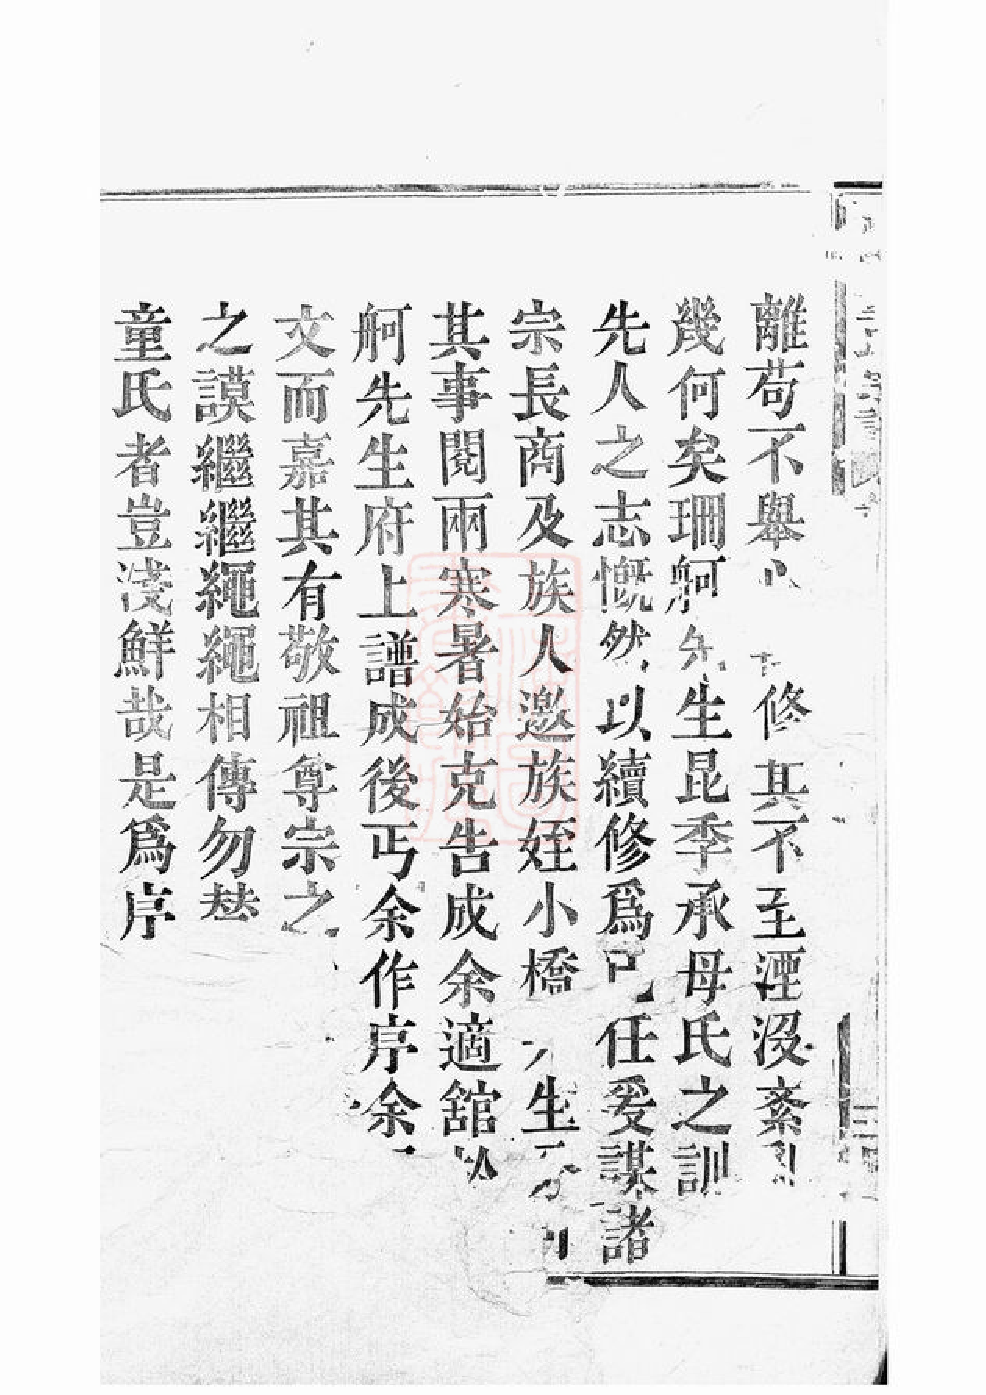 離苟不舉修其不至湮沒紊
幾何矣珊舸先生昆季承母氏之訓
先人之志慨然以續修爲己任爰謀諸
宗長商及族人邀族姪小橋先生
其事閱兩寒暑始克告成余適舘於
舸先生府上譜成後丐余作序余不
文而嘉其有敬祖尊宗之
之謨繼繼繩繩相傳勿替
童氏者豈淺鮮哉是爲序
三